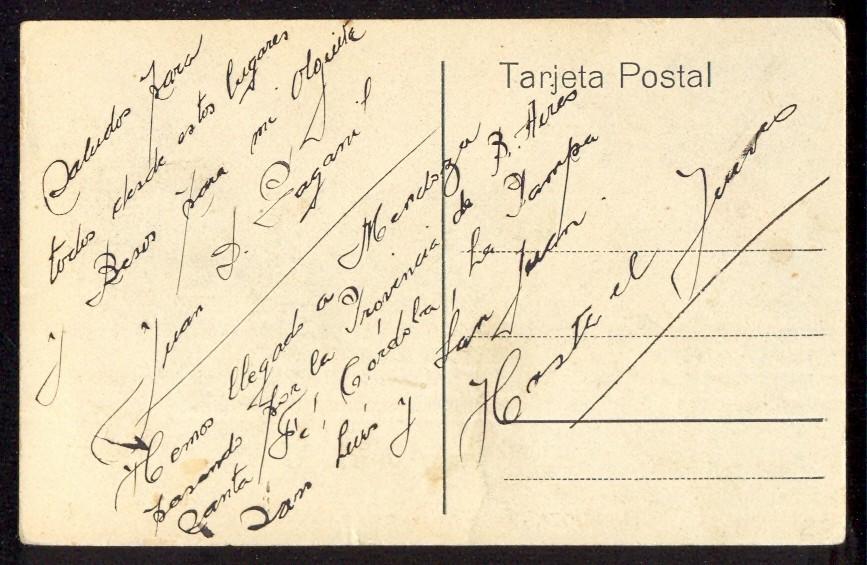 Tarjeta Postal
Saludos para
todos desde estos lugares
y Besos para mi Olguita
Juan D. Pagani
Hemos llegado a Mendoza
pasando por la Próvincia de B. Aires
Santa Fé, Córdoba, La Pampa
San Luis y San Juan
Hasta el Jueves